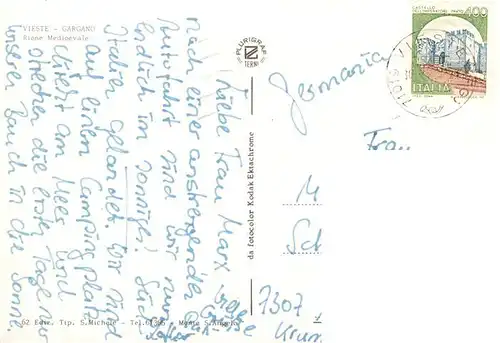 VIESTE - GARGANO
Rione Medioevale
Liebe Frau Marx
nach einer anstrengenden
Autofahrt sind wir nun
endlich im sonnigen Süd
Italien gelandet. Wir sind
auf einem Campingplatz
direkt am Meer und
strecken die ersten Tage nur
unseren Bauch in die Sonne.
PLURIGRAF
TERNI
da fotocolor Kodak Ektachrome
Germania
400
ITALIA
71019
Frau
M
Sch
7307
62 Ediz. Tip. S. Michele - Tel. - Monte S. Angelo